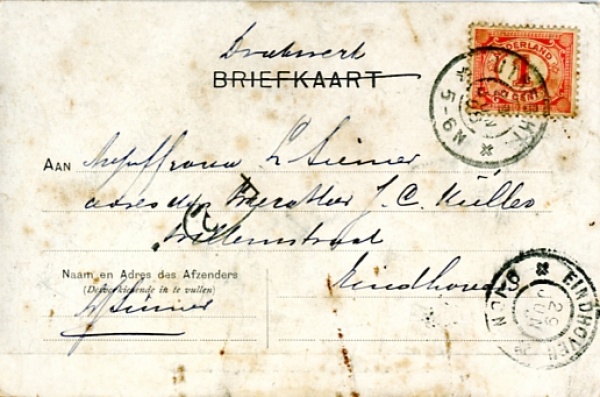 Drukwerk
BRIEFKAART
NEDERLAND
1
CENT
UTRECHT
5-6N
AAN Mejuffrouw L Siemer
adres den Heer J. C. Müller
Willemstraat
Eindhoven
Naam en Adres des Afzenders
(Desverkiezende in te vullen)
Siemer
EINDHOVEN
29
JUN